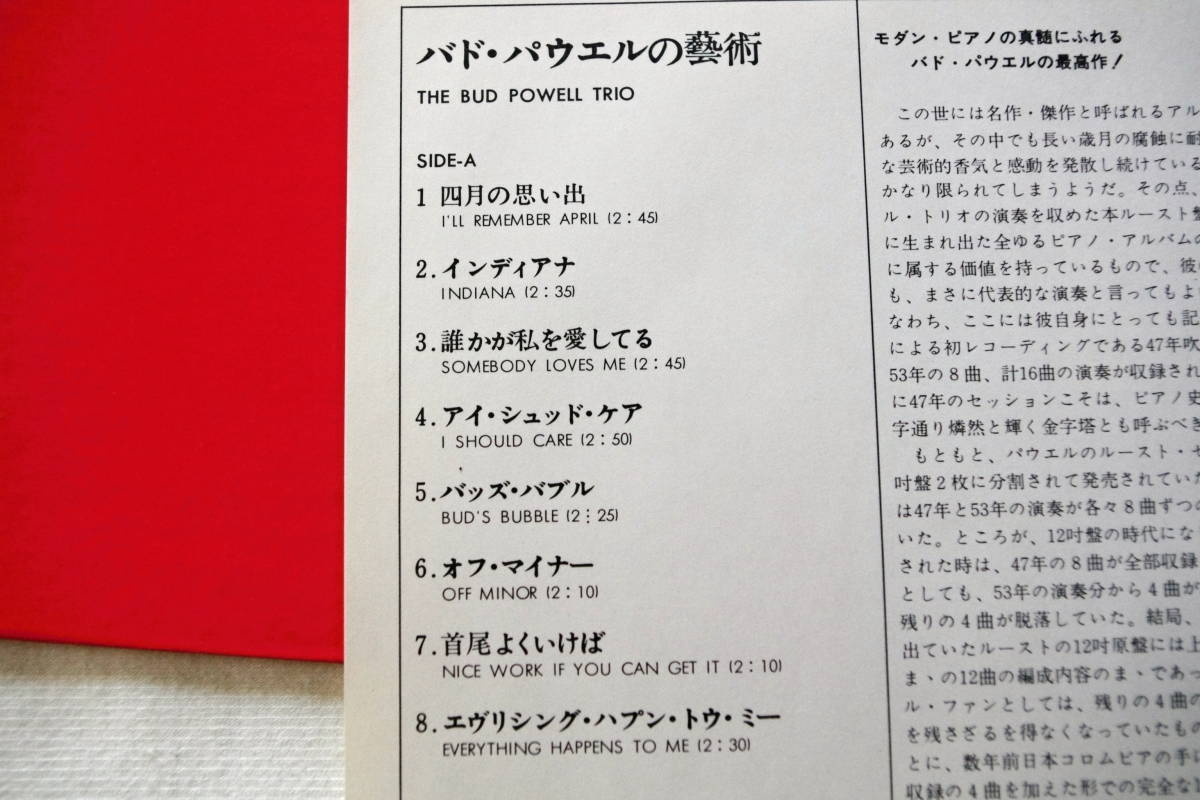 バド・パウエルの藝術
THE BUD POWELL TRIO
SIDE-A
1 四月の思い出
I'LL REMEMBER APRIL (2:45)
2.インディアナ
INDIANA (2:35)
3.誰かが私を愛してる
SOMEBODY LOVES ME (2:45)
4.アイ・シュッド・ケア
I SHOULD CARE (2:50)
5.バッズ・バブル
BUD'S BUBBLE (2:25)
6.オフ・マイナー
OFF MINOR (2:10)
7.首尾よくいけば
NICE WORK IF YOU CAN GET IT (2:10)
8.エヴリシング・ハプン・トウ・ミー
EVERYTHING HAPPENS TO ME (2:30)
モダン・ピアノの真髄にふれる
バド・パウエルの最高作!
この世には名作・傑作と呼ばれるアル
あるが、その中でも長い歳月の腐蝕に耐
な芸術的香気と感動を発散し続けている
かなり限られてしまうようだ。その点、
ル・トリオの演奏を収めた本ルースト盤
に生まれ出た全ゆるピアノ・アルバムの
に属する価値を持っているもので、彼
も、まさに代表的な演奏と言ってもよ
なわち、ここには彼自身にとっても記
による初レコーディングである47年吹
53年の8曲、計16曲の演奏が収録され
に47年のセッションこそは、ピアノ史
字通り燐然と輝く金字塔とも呼ぶべき
もともと、パウエルのルースト・セ
吋盤2枚に分割されて発売されていた
は47年と53年の演奏が各々8曲ずつの
いた。ところが、12吋盤の時代にな
された時は、47年の8曲が全部収録
としても、53年の演奏分から4曲が
残りの4曲が脱落していた。結局、
出ていたルーストの12吋原盤には上
まゝの12曲の編成内容のまゝであっ
ル・ファンとしては、残りの4曲の
を残さざるを得なくなっていたもの
とに、数年前日本コロムビアの手に
収録の4曲を加えた形での完全な